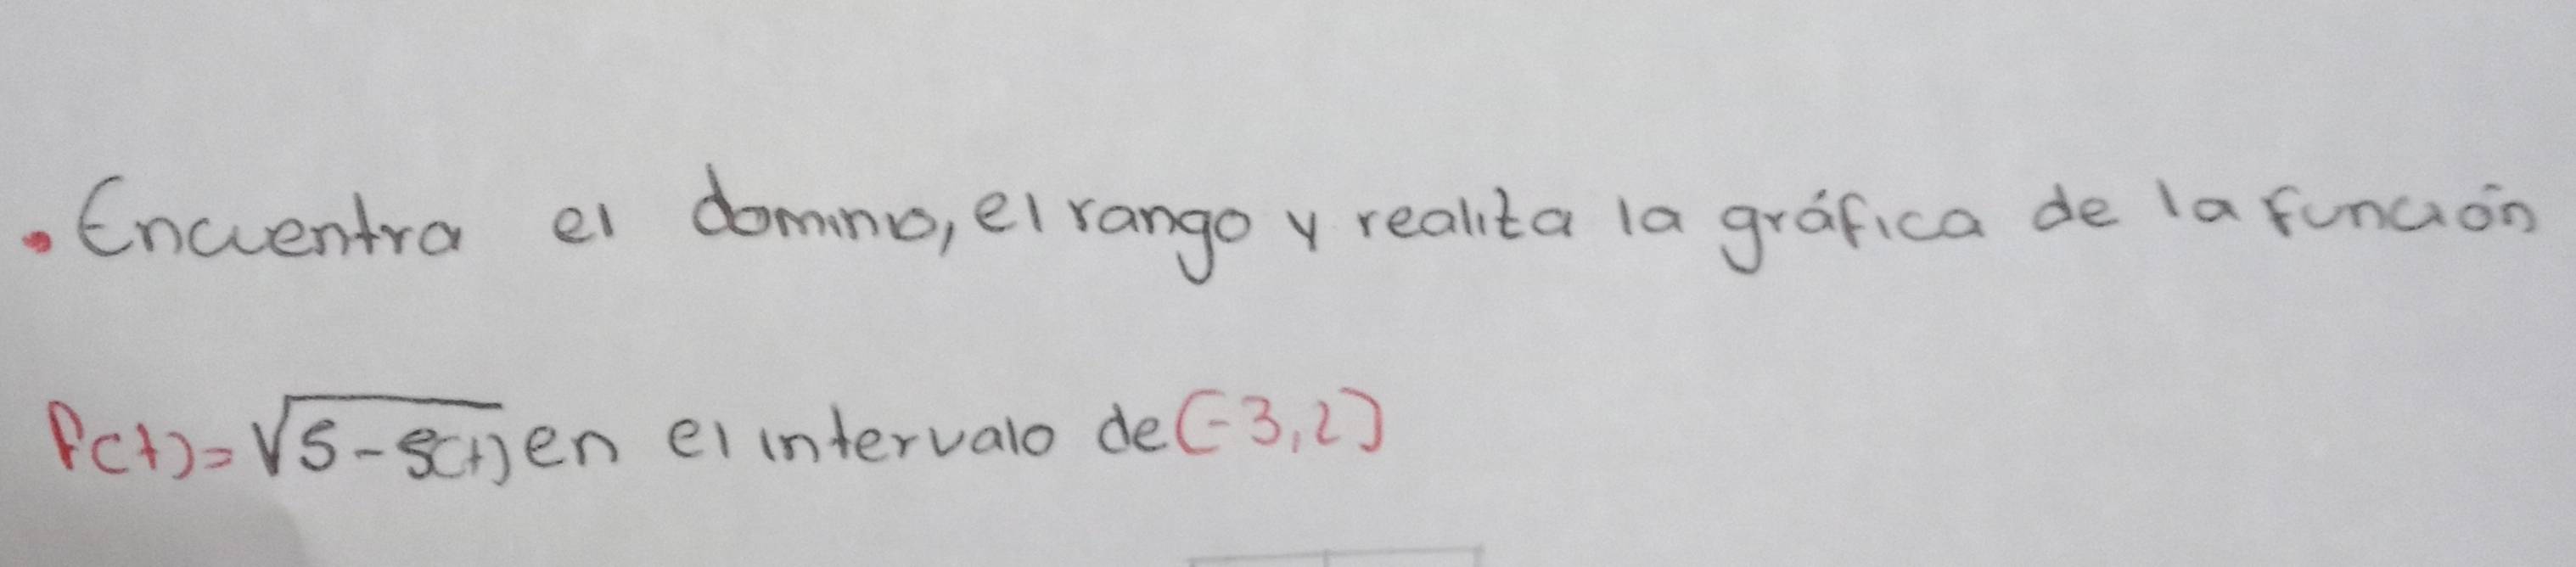 . Encuentra el dominio, el rango y realiza la gráfica de la función
f(t)=√5-5(t) en el intervalo de (-3,2)